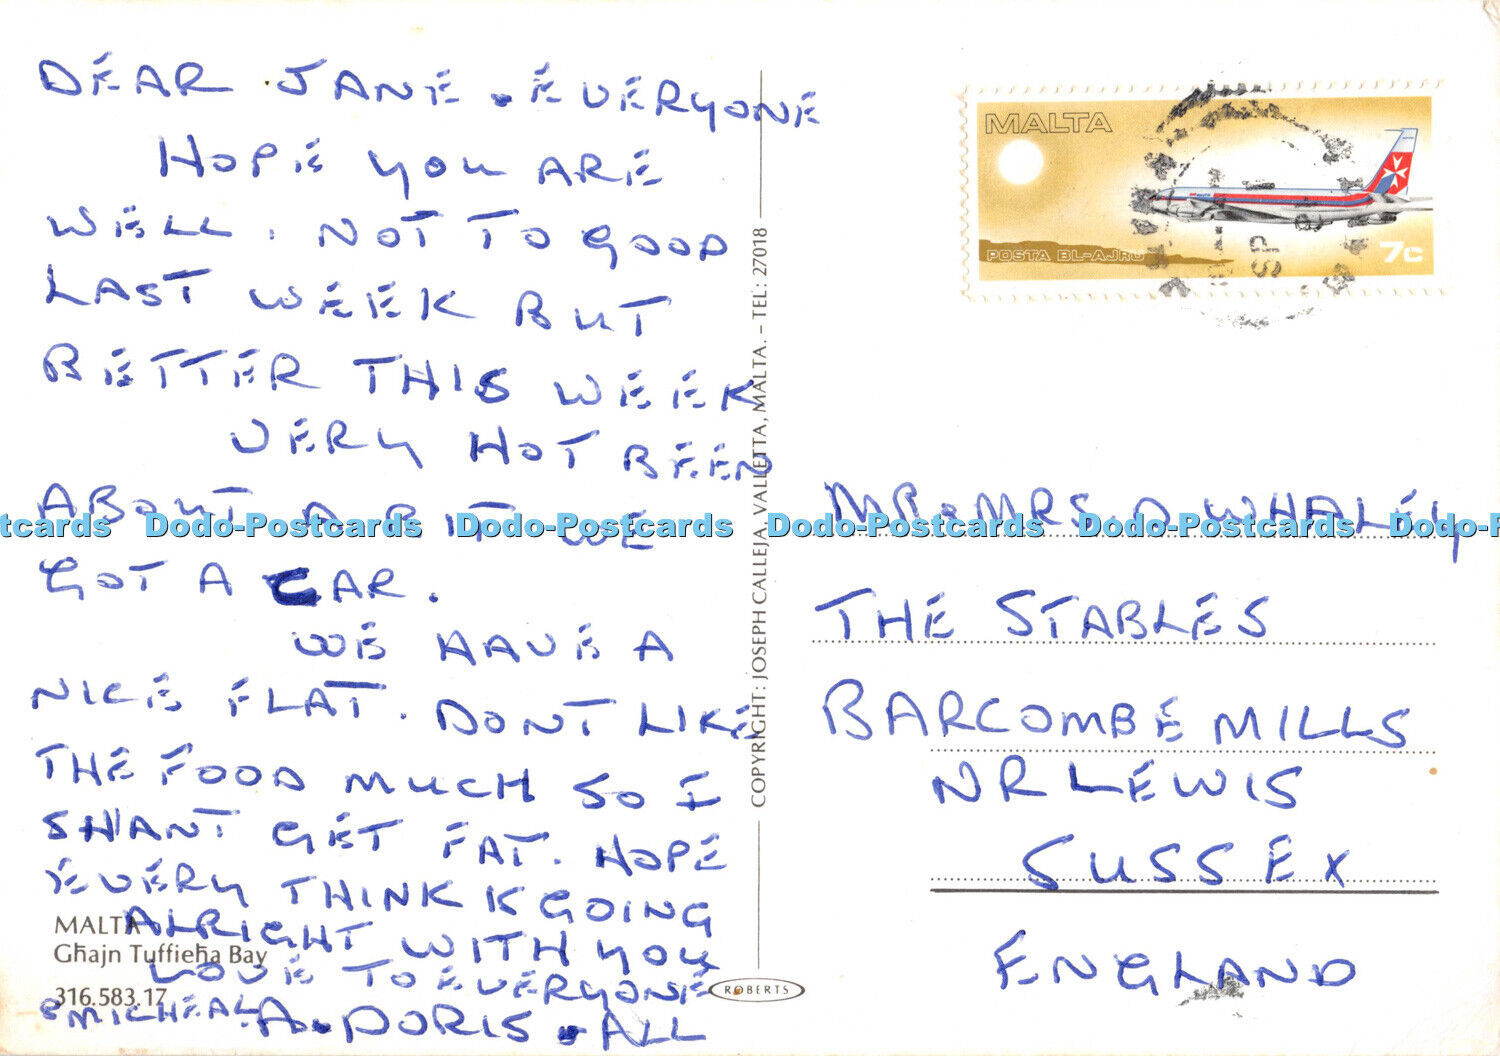 DEAR JANE . EVERYONE
HOPE YOU ARE
WELL. NOT TO GOOD
LAST WEEK BUT
BETTER THIS WEEK
VERY HOT BEEN
ABOUT A BIT WE
GOT A CAR.
WE HAVE A
NICE FLAT. DONT LIKE
THE FOOD MUCH SO I
SHANT GET FAT. HOPE
EVERY THINK GOING
ALRIGHT WITH YOU
LOVE TO EVERYONE
& MICHEAL. A. DORIS . ALL
MALTA
Għajn Tuffieħa Bay
316.583.17
COPYRIGHT: JOSEPH CALLEJA, VALLETTA, MALTA. – TEL: 27018
ROBERTS
MALTA
POSTA BL-AJRU
7c
SP
MR & MRS. D WHALEY
THE STABLES
BARCOMBE MILLS
NR LEWIS
SUSSEX
ENGLAND
tcards Dodo-Postcards Dodo-Postcards Dodo-Postcards Dodo-Postcards Dodo-P